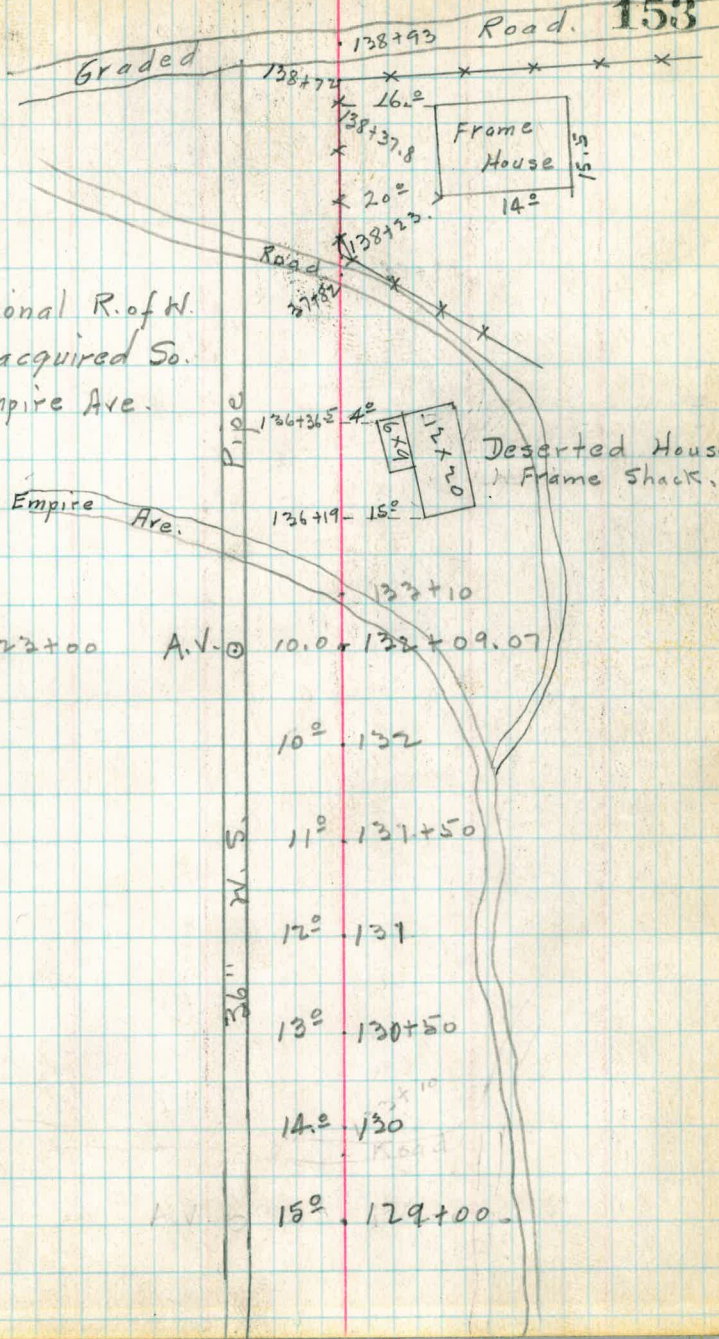 153
138+93 Road.
Graded
138+72
16.0
138+37.8
Frame
House
15.5
14.0
20.0
138+23.
Road
37+82
onal R. of W.
acquired So.
mpire Ave.
Pipe
136+36.5 4.0
6x9
12x20
Deserted Hous
Frame Shack.
136+19 15.0
Empire Ave.
133+10
23+00 A.V. 10.0 132+09.07
10.0 132
11.0 131+50
36" W.S.
12.0 131
13.0 130+50
14.0 130
Road
15.0 129+00